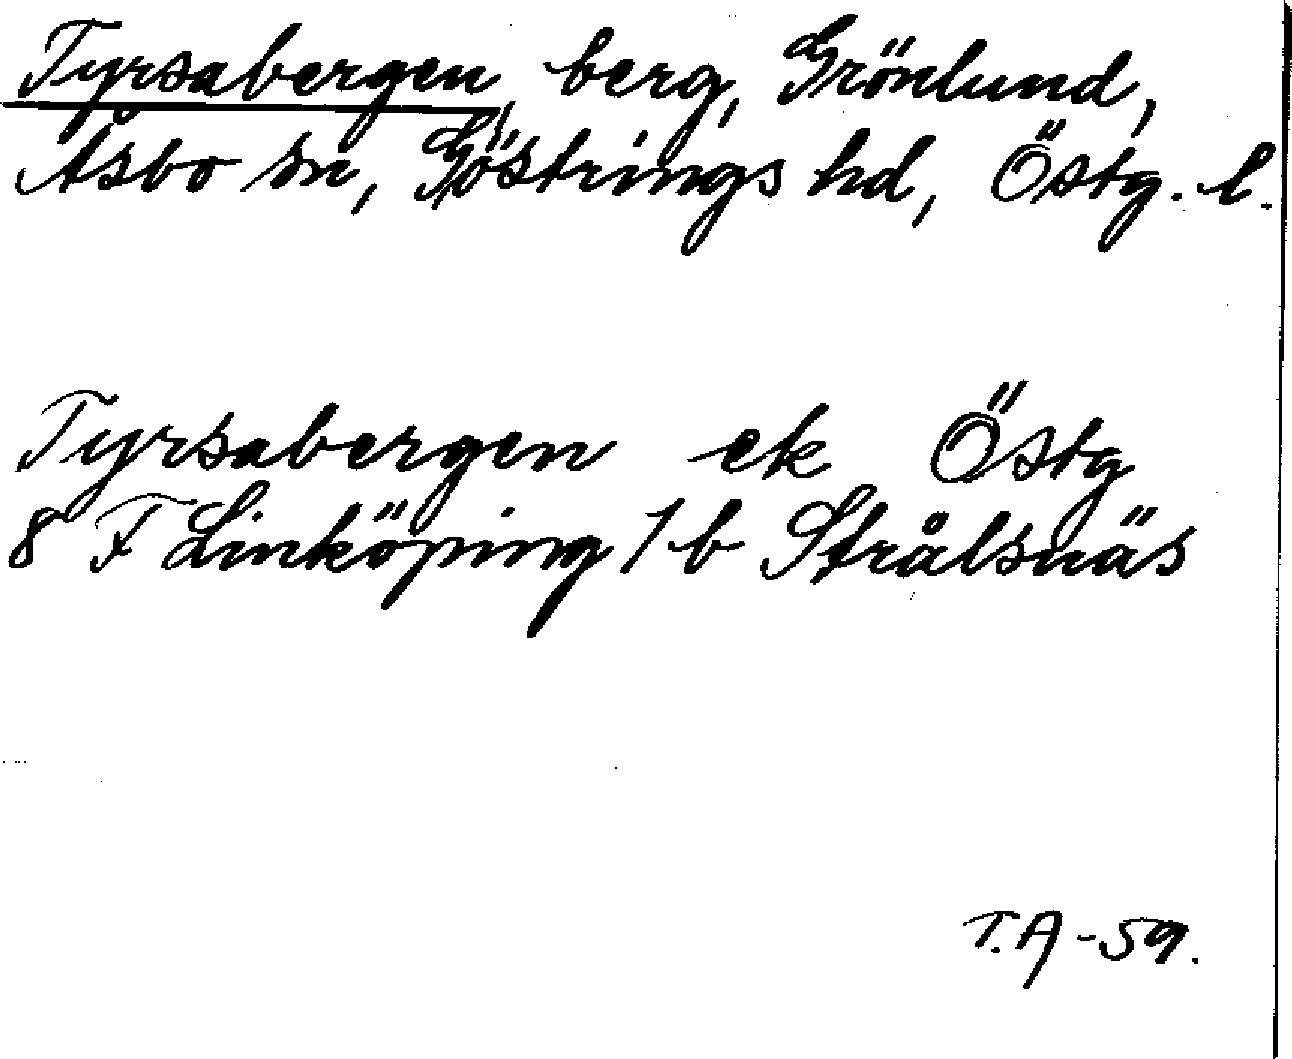 Tyrsabergen, berg, Grönlund,
Åsbo sn, Göstrings hd, Östg. l.
Tyrsabergen ek Östg
8 F Linköping 1 b Strålsnäs
T.A -59.